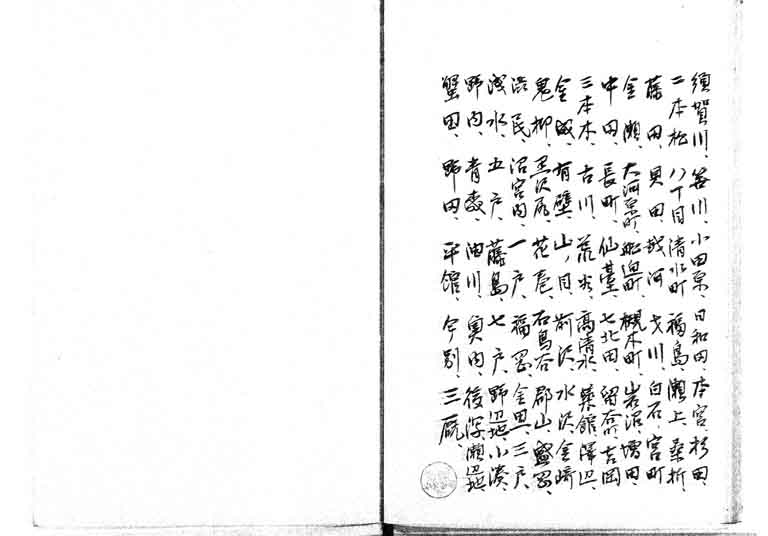 須賀川、笹川、小田原、日和田、本宮、杉田、
二本松、八丁目、清水町、福島、瀬上、桑折
藤田、貝田、越河、才川、白石、宮町
金瀬、大河原町、船迫町、槻木町、岩沼、増田、
中田、長町、仙臺、七北田、吉岡
三本木、古川、荒谷、高清水、築館、澤辺、
金成、有壁、山ノ目、前沢、水沢、金崎
鬼柳、黒沢尻、花巻、石鳥谷、郡山、盛岡、
渋民、沼宮内、一戸、福岡、金田一、三戸、
浅水、五戸、藤島、七戸、野辺地、小湊、
野内、青森、油川、後深、瀬辺地
蟹田、野田、平館、今別、三厩、